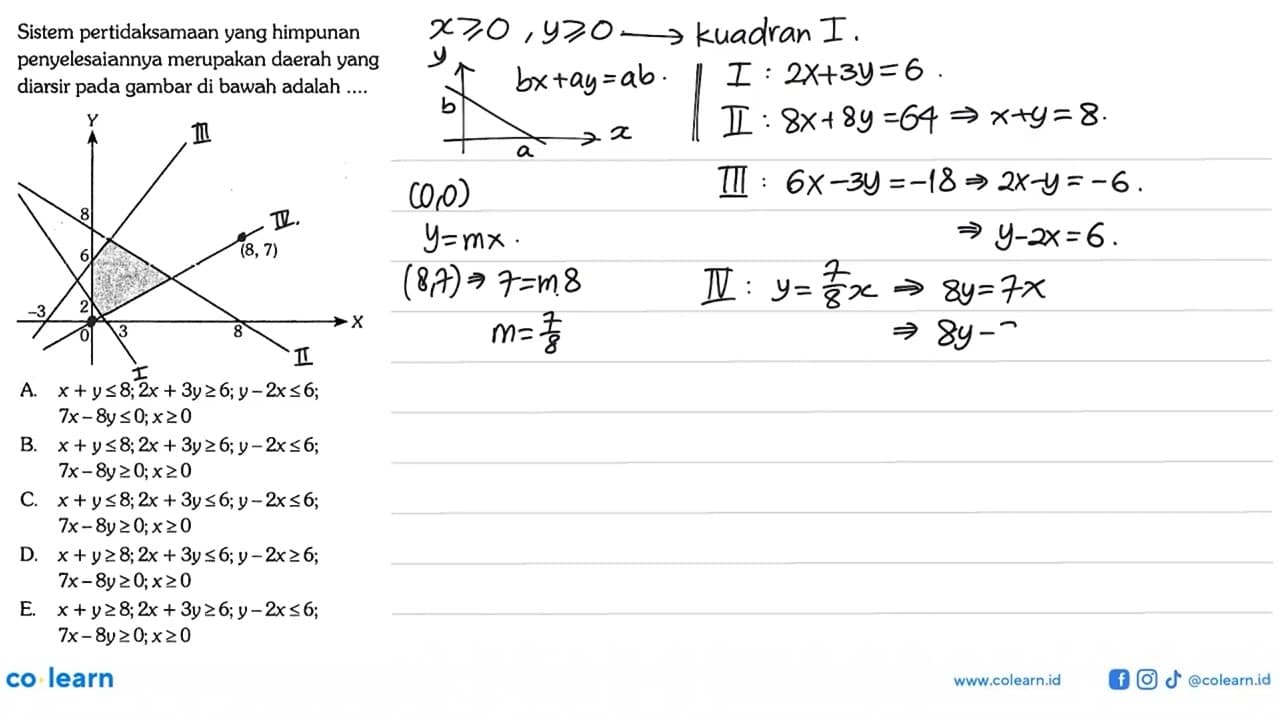 Sistem pertidaksamaan yang himpunan
penyelesaiannya merupakan daerah yang
diarsir pada gambar di bawah adalah ....
Y
III
8
IV.
(8, 7)
6
2
-3
0
3
8
X
II
I
A. x + y ≤ 8; 2x + 3y ≥ 6; y – 2x ≤ 6;
7x – 8y ≤ 0; x ≥ 0
B. x + y ≤ 8; 2x + 3y ≥ 6; y – 2x ≤ 6;
7x – 8y ≥ 0; x ≥ 0
C. x + y ≤ 8; 2x + 3y ≤ 6; y – 2x ≤ 6;
7x – 8y ≥ 0; x ≥ 0
D. x + y ≥ 8; 2x + 3y ≤ 6; y – 2x ≥ 6;
7x – 8y ≥ 0; x ≥ 0
E. x + y ≥ 8; 2x + 3y ≥ 6; y – 2x ≤ 6;
7x – 8y ≥ 0; x ≥ 0
x ≥ 0 , y ≥ 0 → kuadran I.
y
b
a
x
bx + ay = ab.
I : 2x + 3y = 6.
II : 8x + 8y = 64 ⇒ x + y = 8.
III : 6x – 3y = -18 ⇒ 2x – y = -6.
⇒ y – 2x = 6.
(0,0)
y = mx.
(8,7) ⇒ 7 = m.8
m = 7/8
IV : y = 7/8 x ⇒ 8y = 7x
⇒ 8y –
co learn
www.colearn.id
@colearn.id